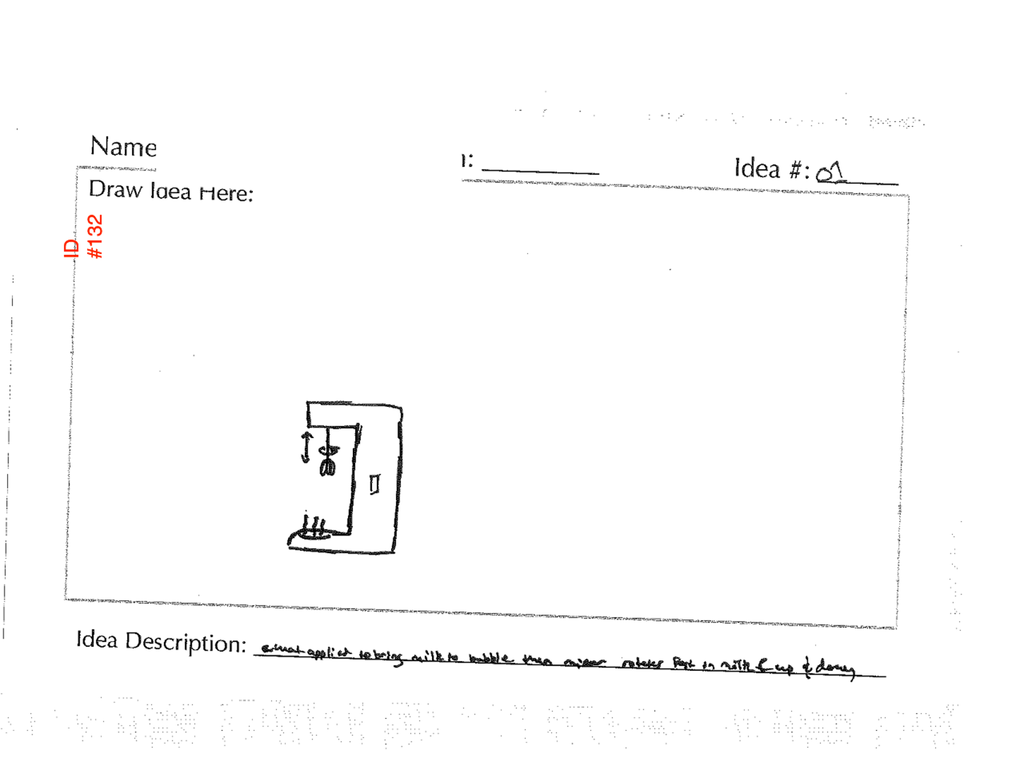 Name
1: Idea #: 01
Draw Idea Here:
ID
#132
Idea Description: applied to bring milk to bubble then mixer rotates fast in milk & up & down